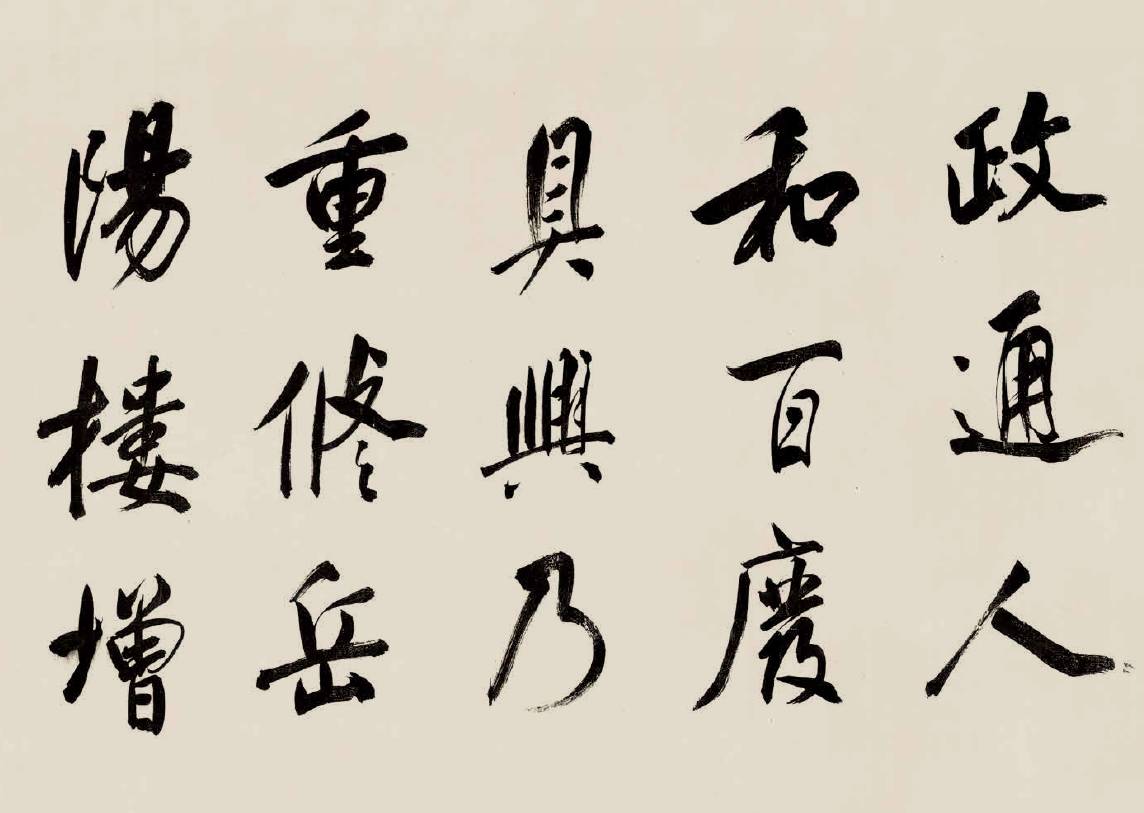 政通人
和百廢
具興乃
重修岳
陽樓增